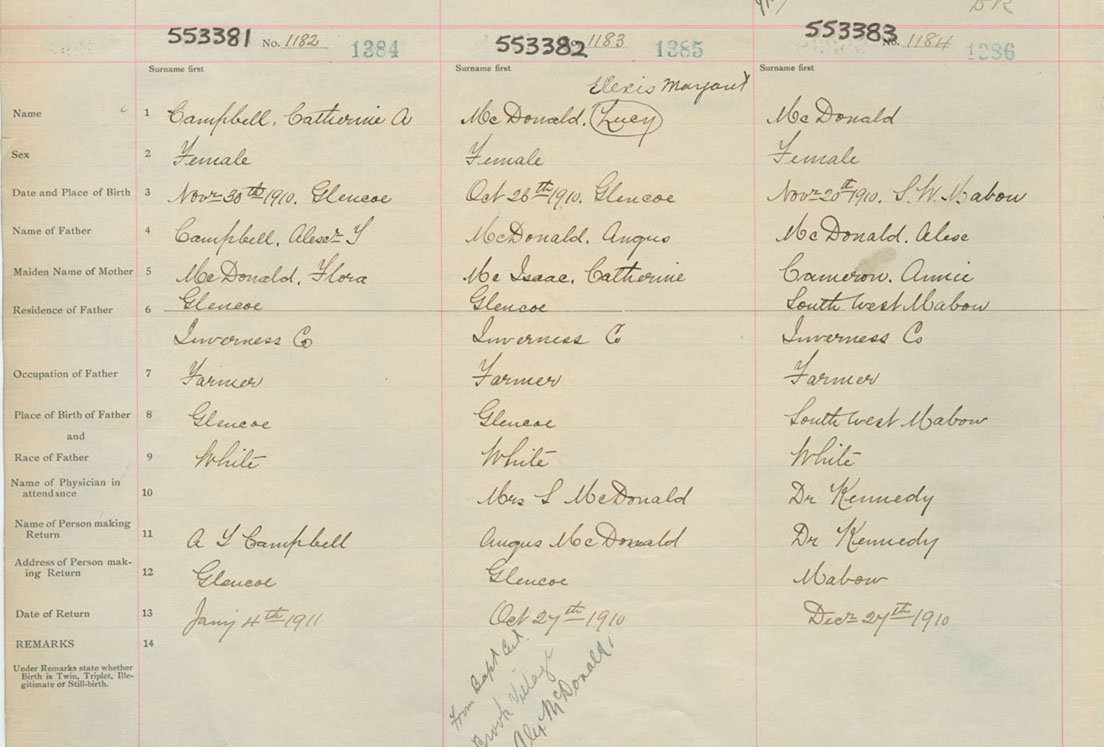 553381 No. 1182 1384
553382 1183 1385
553383 No. 1184 1386
Surname first Surname first Surname first
Elexis Margaret
Name 1 Campbell, Catherine A McDonald, Lucy McDonald
Sex 2 Female Female Female
Date and Place of Birth 3 Novr 30th 1910. Glencoe Oct 26th 1910. Glencoe Novr 20th 1910. S. W. Mabou
Name of Father 4 Campbell, Alexr Y McDonald, Angus McDonald, Alex
Maiden Name of Mother 5 McDonald, Flora McIsaac, Catherine Cameron, Annie
Residence of Father 6 Glencoe Glencoe South West Mabou
Inverness Co Inverness Co Inverness Co
Occupation of Father 7 Farmer Farmer Farmer
Place of Birth of Father 8 Glencoe Glencoe South West Mabou
and
Race of Father 9 White White White
Name of Physician in
attendance 10 Mrs S McDonald Dr Kennedy
Name of Person making
Return 11 A Y Campbell Angus McDonald Dr Kennedy
Address of Person mak-
ing Return 12 Glencoe Glencoe Mabou
Date of Return 13 Jany 4th 1911 Oct 27th 1910 Decr 27th 1910
REMARKS 14
Under Remarks state whether
Birth is Twin, Triplet, Ille-
gitimate or Still-birth.
From Bapt Cert.
Brook Village
Alex McDonald